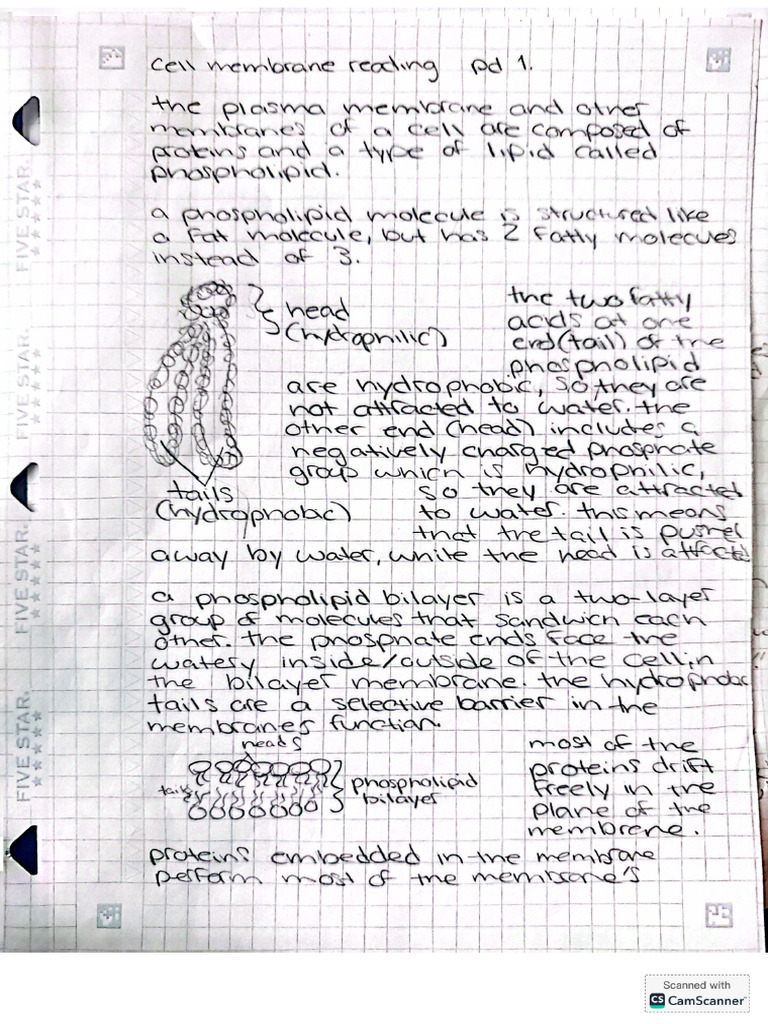 cell membrane reading pd 1.
the plasma membrane and other
membranes of a cell are composed of
proteins and a type of lipid called
phospholipid.
a phospholipid molecule is structured like
a fat molecule, but has 2 fatty molecues
instead of 3.
head
(hydrophilic)
the two fatty
acids at one
end (tail) of the
phospholipid
are hydrophobic, so they are
not attracted to water. the
other end (head) includes a
negatively charged phosphate
group which is hydrophilic,
tails
(hydrophobic)
so they are attracted
to water. this means
that the tail is pushed
away by water, while the head is attracted
a phospholipid bilayer is a two-layer
group of molecules that sandwich each
other. the phosphate ends face the
watery inside/outside of the cell in
the bilayer membrane. the hydrophobic
tails are a selective barrier in the
membranes function.
heads
tails
phospholipid
bilayer
most of the
proteins drift
freely in the
plane of the
membrene.
proteins embedded in the membrane
perform most of the membrane's
FIVE STAR.
FIVE STAR.
FIVE STAR.
FIVE STAR.
Scanned with
CS CamScanner